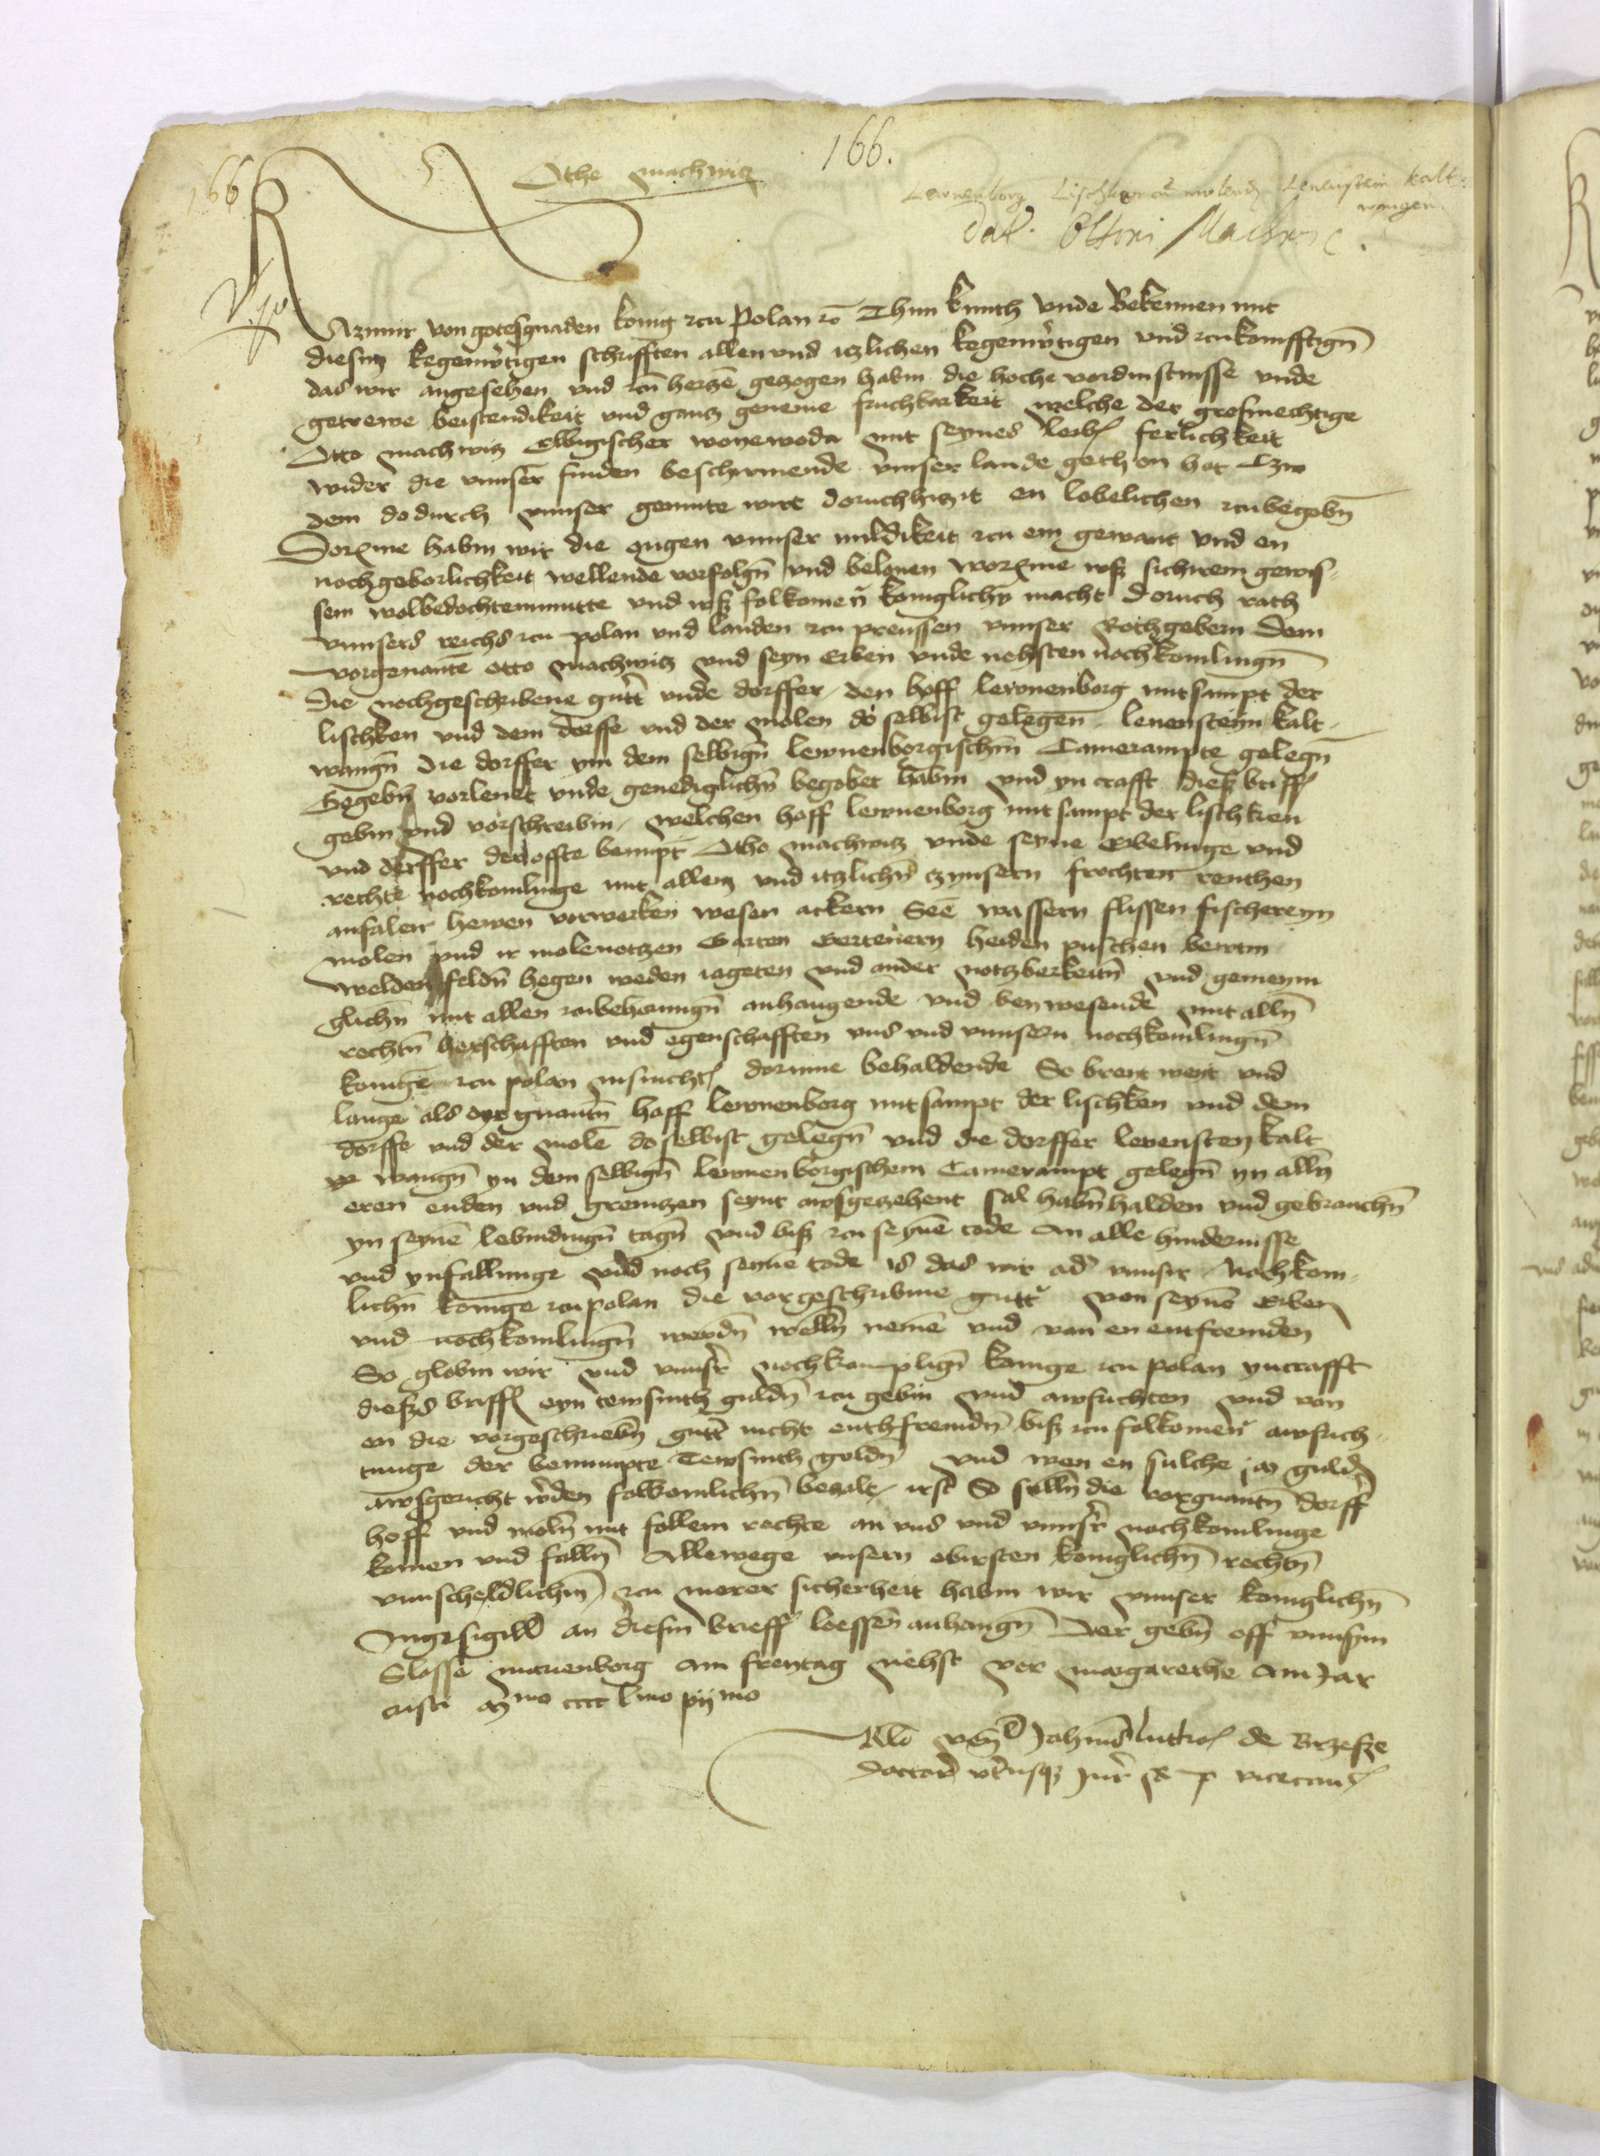 166.
166
Othe Machwitz
Lewenborg Lischken cū molend Lewenstein kalt-
wangen.
Dat. Ottoni Machwic.
Kazimir von gotesgnaden konig zcu Polan ꝛc Thun kunth vnde Bekennen mit
diesin kegenw'tigen schrifften allen vnd itzlichen kegenw'tigen vnd zcukomfftign̄
das wir angesehen vnd zcu herczē geczogen habin die hoche vordinstnisse vnde
getrewe beistendikeit vnd gantz geneme fruchbarkeit welche der grosmechtige
Otto machwitz Elbigischer woyewoda mit seynes leibs ferlichkeit
wider die vnnser finden beschirmende vnnser lande gethon hot Czu
dem dodurch vnnser gemute wirt doruchhitzit en lobelichen zcubegobn̄
Dorume habin wir die ougen vnnser mildikeit zcu em gewant vnd en
noch geborlichkeit wellende vorfolgn̄ vnd belonen worume wss sichirem gewis-
sem wolbedochtemmutte vnd wss folkomen̄ koniglichir macht Doruch rath
vnnsers reichs zcu polan vnd landen zcu preussen vnnser Rothgebern Dem
vorgenante otto machwitz vnd seyn Erben vnde nehsten nochkomlingn̄
Die nochgeschribene gutt' vnde dorffer den hoff lewenborg mitsampt der
lischken vnd dem dorffe vnd der molen do selbist gelegen levenstein kalt-
wangn̄ Die dorffer yn dem selbign̄ lewenborgischin Camerampte gelegn̄
Gegebn̄ vorlenet vnde genediglichn̄ begobet habin vnd yn crafft diess briffs
gebin vnd vorschreibin welchen hoff lewenborg mit sampt der lischken
vnd dorffer der offte benupt Otho machwitz vnde seyne Erbelinge vnd
rechte nochkomlinge mit allen vnd itzlichn̄ czinsern frochten renthen
anfalen hewen vorwerken wesen ackern Seē wassern flissen fischereyn
molen vnd ir molenotzen Garten Gertenern heiden puschen
welden feldn̄ hegen weden iageten vnd ander notzberkeitn̄ vnd gemeyn
glichn̄ mit allen zcubehorungn̄ anhangende vnd beywesende mit alln̄
rechtn̄ herschafften vnd egenschafften vns vnd vnnsern nochkomlingn̄
konige zcu polan dorinne behaldende So breit weit vnd
lange als dyr gnantn̄ hoff lewenborg mitsampt der lischken vnd dem
dorffe vnd der molē do selbist gelegn̄ vnd die dorffer levensteyn kalt
wangn̄ yn dem selbign̄ lewenborgischem Camerampt gelegn̄ yn alln̄
eren enden vnd grenitzen seynt awsgeczehent sal habn̄ halden vnd gebrauchn̄
yn seynē lebindingn̄ tagn̄ vnd biss zcu seynē tode An alle hindernisse
vnd ynfallunge vnd noch seyne tode is das wir ad' vnnser Nochkom-
lichn̄ konige zcu polan die vorgeschribine gutt' von seynē erben
vnd nochkomlingn̄ werdn̄ welln̄ nemē vnd von en entfremden
So globin wir vnd vnnser nochkomplign̄ konige zcu polan yn crafft
diesses briffs eyn tewsinth guldn̄ zcu gebin vnd awsuchten vnd von
en die vorgeschriebn̄ gutt' nicht enthfremdn̄ biss zcu folkomen' awsuch-
tunge der benumpte Tewsinth goldn̄ vnd wen en sulche guldn̄
awsgericht w'den folkomlichn̄ beczalt irst So selln̄ die vorgnantn̄ dorff'
hoff vnd moln̄ mit follem rechte an vns vnd vnnser nochkomlinge
komen vnd falln̄ Allewege vnsern obirsten koniglichn̄ rechtn̄
vnnschedlichn̄ zcu merer sicherheit habin wir vnnser koniglichn̄
Ingesigill an diesin brieff loessen anhangn̄ Der gebn̄ off vnnsyrn
Slosse marienborg am freytag nehst vor margarethe Am Jar
cristi mo cccc lmo
Rlo vend Johannis lutkos de Brzesze
doctoris vtriusqz Jur' R P vicecanc